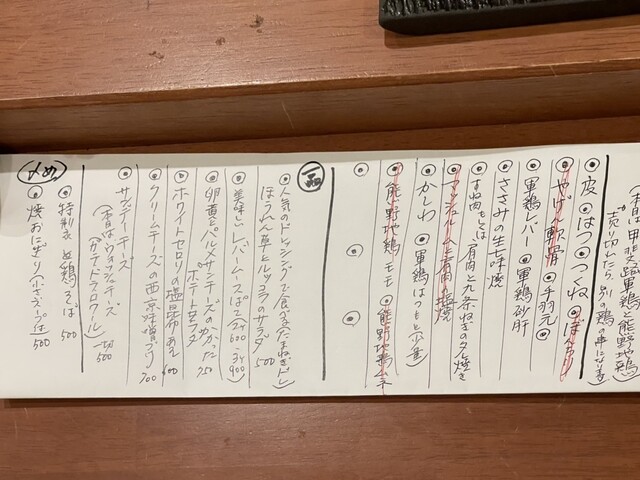 (本日は甲斐路軍鶏と熊野地鶏)
売り切れたら、別の鶏の串になります
◎皮 ◎はつ ◎つくね ◎ぼんちり
◎やげん軟骨 ◎手羽元 ◎
◎軍鶏レバー ◎軍鶏砂肝
◎ささみの生七味焼
◎すね肉もしくは肩肉と九条ねぎのタレ焼き
◎マッシュルームと肩肉塩焼
◎かしわ ◎軍鶏はつもと(少量)
◎熊野地鶏モモ ◎熊野地鶏ムネ
一品
◎人気のドレッシングで食べる(たまねぎドレ)
ほうれん草とルッコラのサラダ 500
◎美味いレバームースぱて(2ヶ600 3ヶ900)
◎卵黄とパルメザンチーズのかかった
ポテトサラダ 750
◎ホワイトセロリの塩昆布あえ 600
◎クリームチーズの西京味噌づけ 700
◎サンデイチーズ
(本日はウォッシュチーズ
ガテドラロワール) 一切500
〆め
◎特製きぬ鶏そば 500
◎焼おにぎり(小さなスープ付) 500